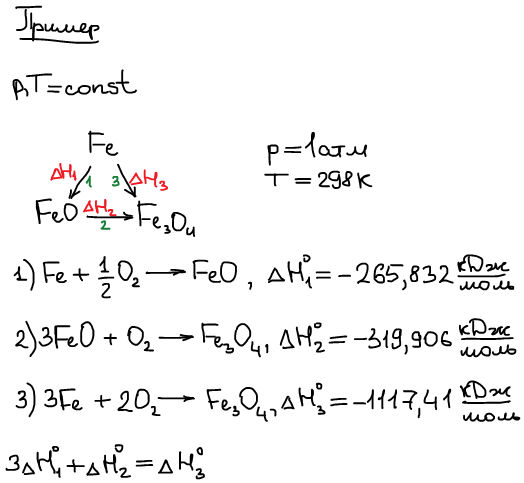 Пример
p,T=const
Fe
p=1атм
T=298K
ΔH₁ 1 3 ΔH₃
FeO ΔH₂ 2 Fe₃O₄
1) Fe + 1/2 O₂ → FeO, ΔH₁⁰ = -265,832 кДж/моль
2) 3FeO + O₂ → Fe₃O₄, ΔH₂⁰ = -319,906 кДж/моль
3) 3Fe + 2O₂ → Fe₃O₄, ΔH₃⁰ = -1117,41 кДж/моль
3ΔH₁⁰ + ΔH₂⁰ = ΔH₃⁰